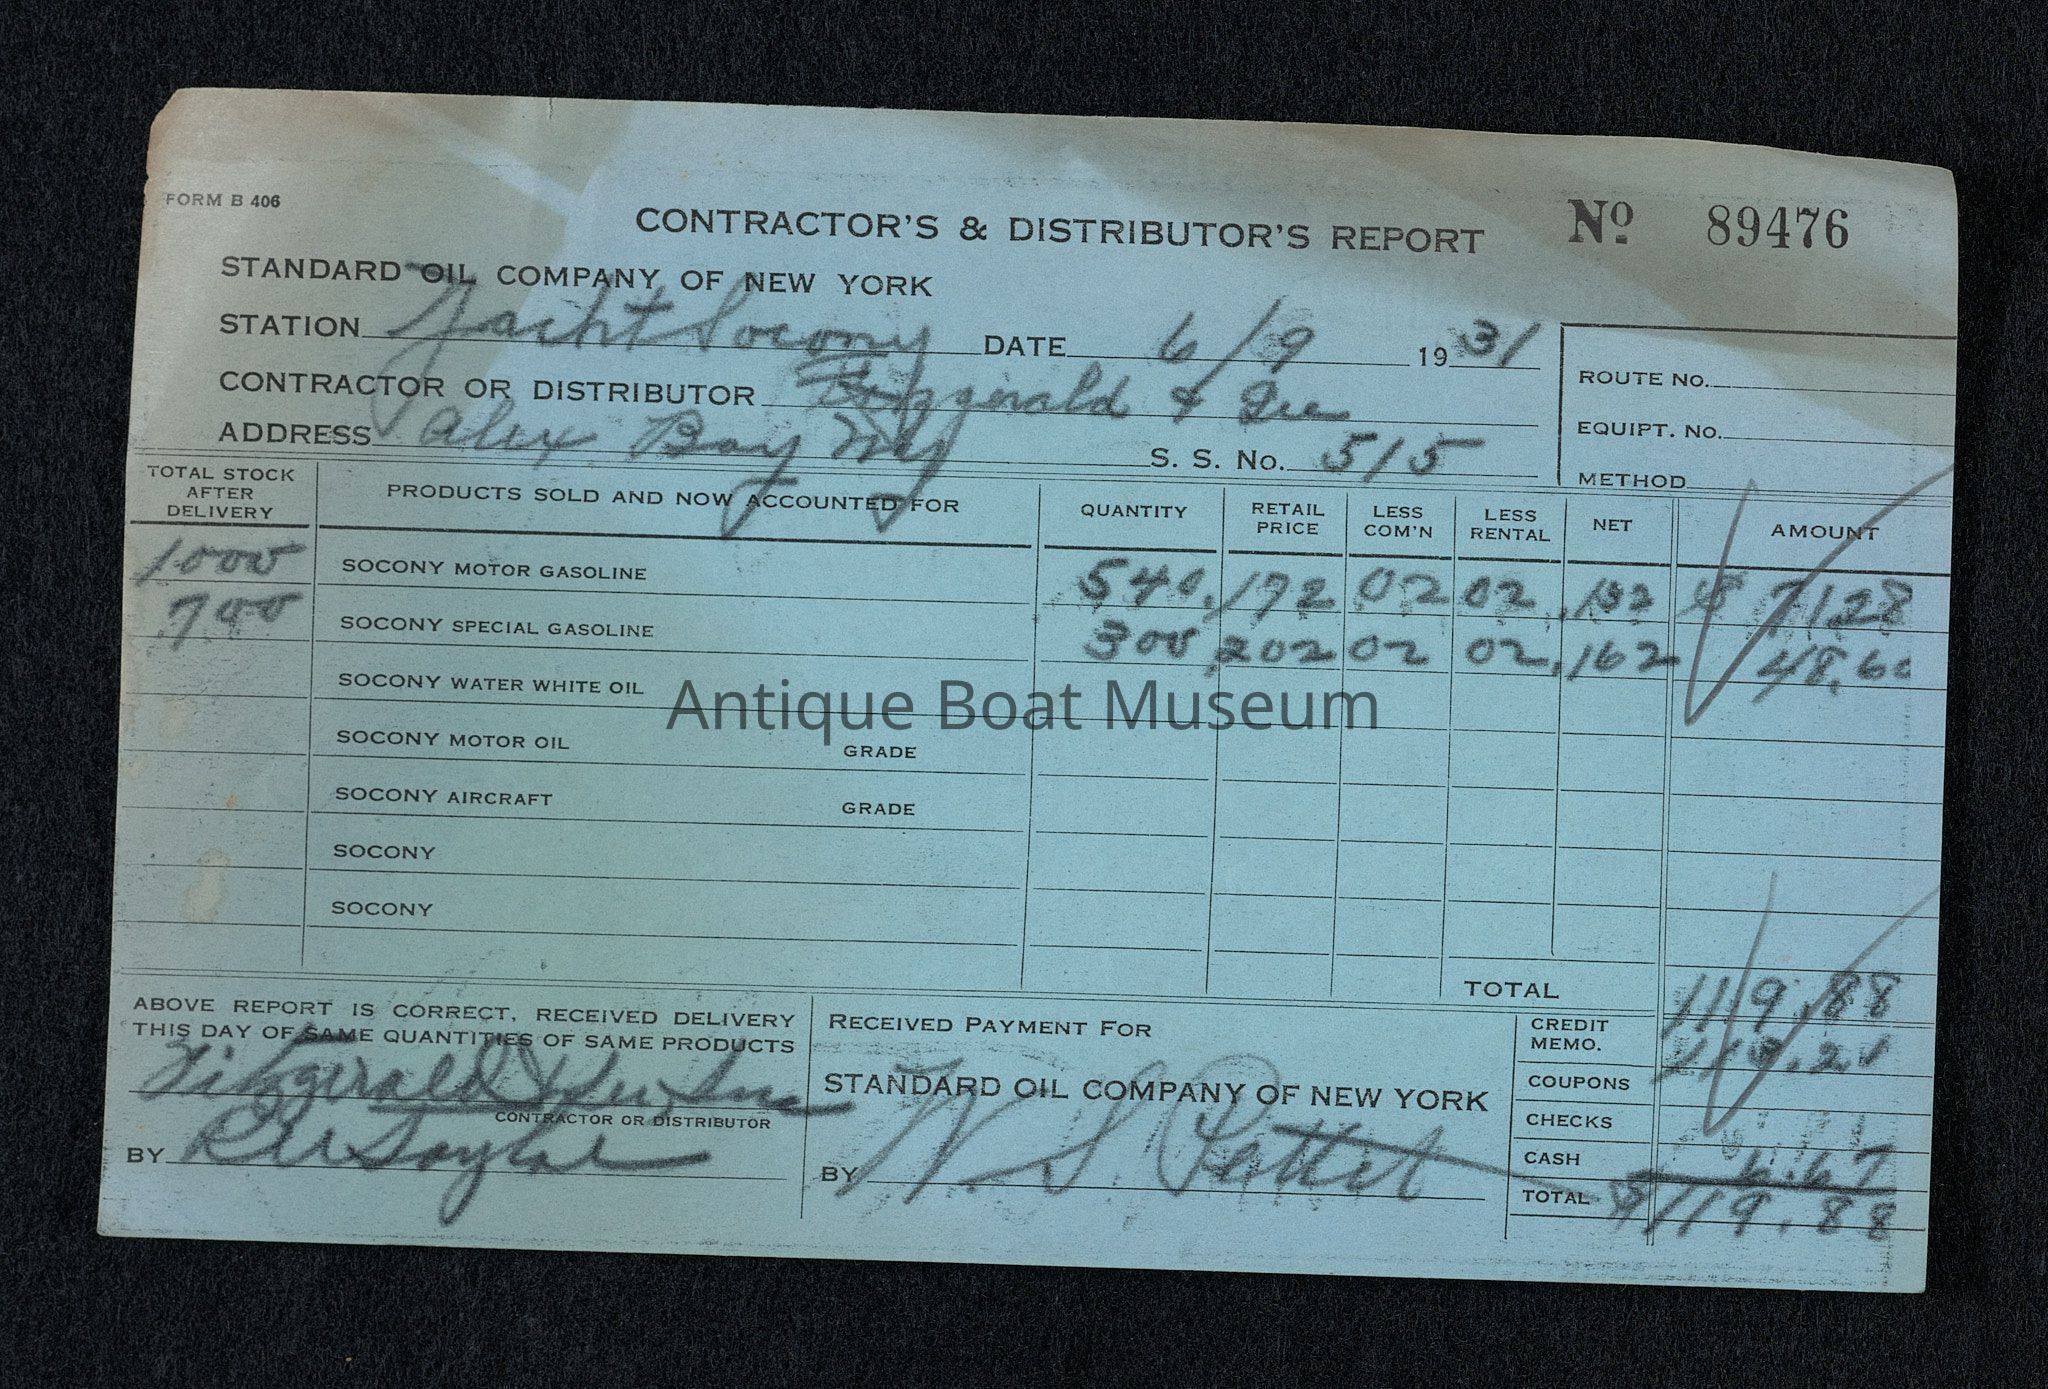 FORM B 406
CONTRACTOR'S & DISTRIBUTOR'S REPORT Nº 89476
STANDARD OIL COMPANY OF NEW YORK
STATION Yacht Socony DATE 6/9 1931
ROUTE NO.
CONTRACTOR OR DISTRIBUTOR Fitzgerald & Lee
EQUIPT. NO.
ADDRESS Alex Bay NY S. S. No. 515
METHOD
TOTAL STOCK AFTER DELIVERY PRODUCTS SOLD AND NOW ACCOUNTED FOR QUANTITY RETAIL PRICE LESS COM'N LESS RENTAL NET AMOUNT
1000 SOCONY MOTOR GASOLINE 540 .172 02 02 .132 $ 71.28
700 SOCONY SPECIAL GASOLINE 300 .202 02 02 .162 48.60
SOCONY WATER WHITE OIL
Antique Boat Museum
SOCONY MOTOR OIL GRADE
SOCONY AIRCRAFT GRADE
SOCONY
SOCONY
TOTAL 119.88
ABOVE REPORT IS CORRECT, RECEIVED DELIVERY
THIS DAY OF SAME QUANTITIES OF SAME PRODUCTS
Fitzgerald & Lee Inc
CONTRACTOR OR DISTRIBUTOR
BY
RECEIVED PAYMENT FOR
STANDARD OIL COMPANY OF NEW YORK
BY W. S.
CREDIT MEMO.
COUPONS
CHECKS
CASH 6.67
TOTAL $119.88